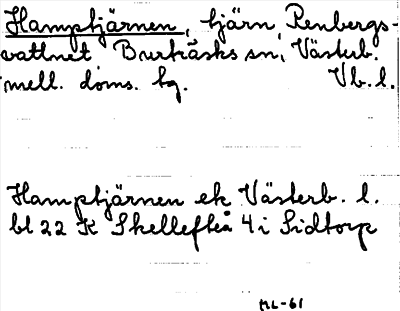 Hamptjärnen, tjärn Renbergs-
vattnet Burträsks sn, Västerb.
mell. doms. hg. Vb. l.
Hamptjärnen ek Västerb. l.
bl 22 K Skellefteå 4 i Sidtorp
ML-61